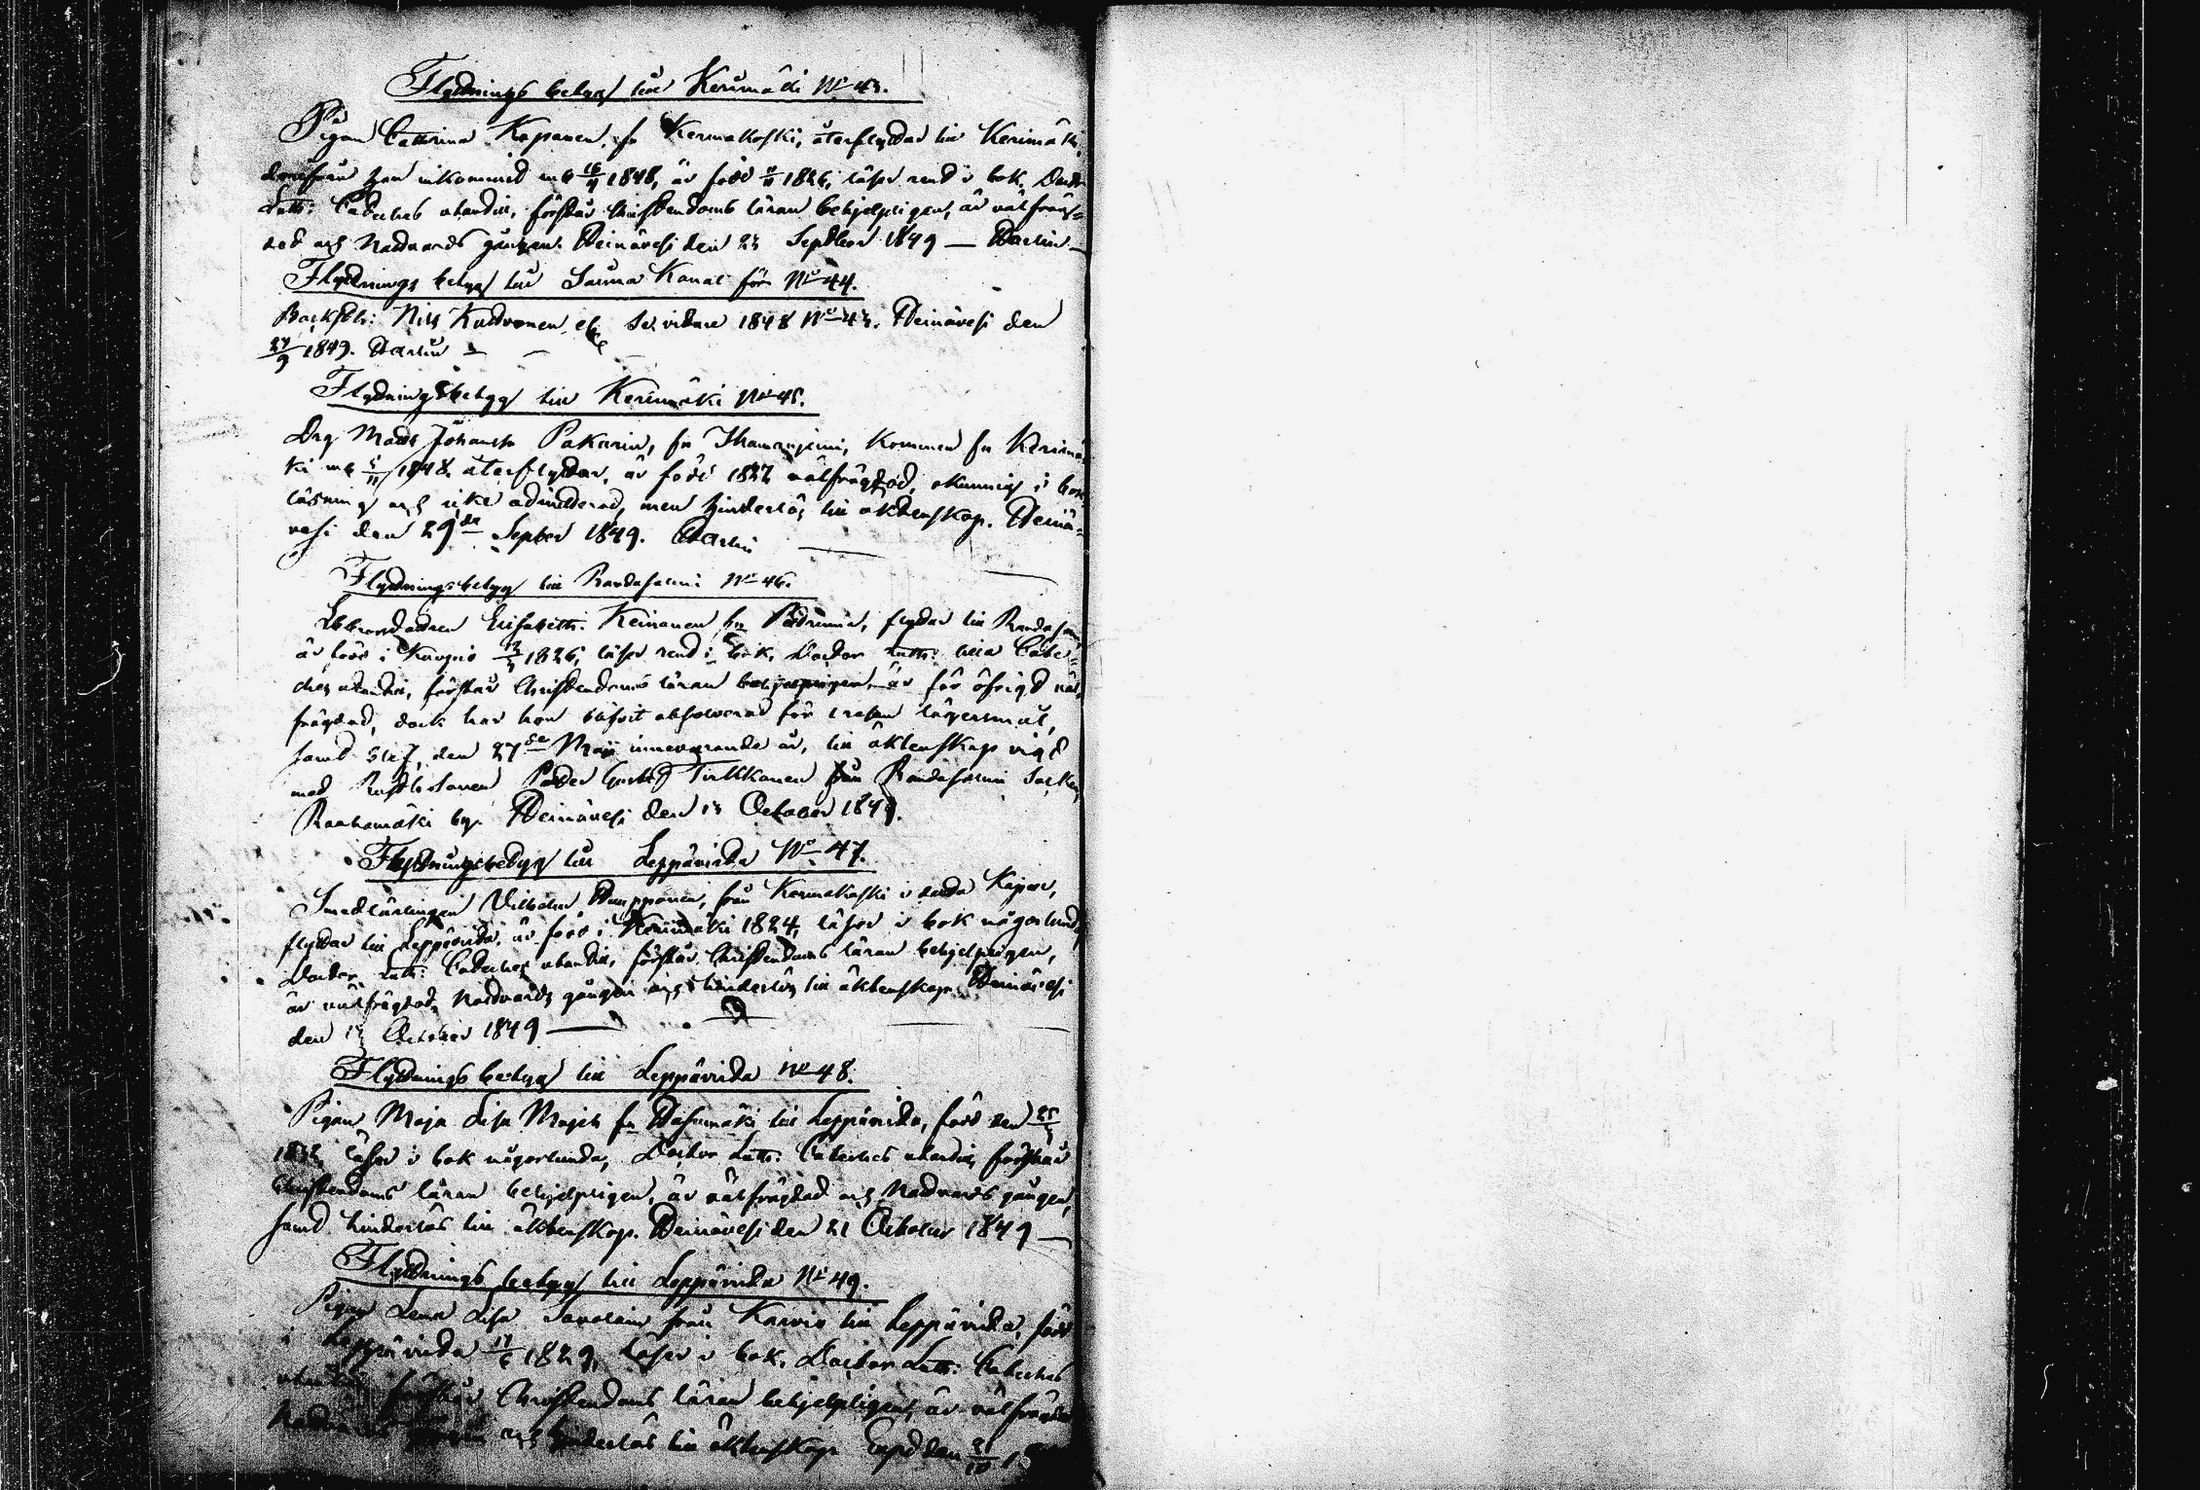 Flyttnings betyg till Kerimäki No 43.
Pigan Cathrina Kapanen, fr Kermakoski, återflyttar till Kerimäki,
derifrån hon inkommit m b 16/9 1848, är född 1826, läser rent i bok, Doctr
Luth: Cateches utantill, förstår Christendoms läran behjelpligen, är välfräg-
dad och Nattvards gången. Heinävesi den 23 Septber 1849 — Martin —
Flyttnings betyg till Saima Kanal för No 44.
Backstu: Nils Kudvonen, etc se vidare 1848 No 43. Heinävesi den
27/9 1849. Martin
Flyttningsbetyg till Kerimäki No 45.
Drg Mats Johansn Pakarin, fr Ihamaniemi, kommen fr Kerimä-
ki m b 5/11 1848. återflyttar, är född 1827 välfrägdad, okunnig i bok
läsning och icke admitterad, men hinderlös till äktenskap. Heinä-
vesi den 29de Septber 1849. Martin
Flyttningsbetyg till Randasalmi No 46.
Elisabeth: Keinanen fr Petruma, flyttar till Randasalmi
är född i 1826, läser rent i bok, Doctor Luth: lilla Cate-
ches utantill, förstår Christendoms läran behjelpligen, är för öfrigt väl-
frägdad, dock har hon blifvit absolverad för lägersmål,
samt blef, den 27de Maji innevarande år, till äktenskap vigd
med Petter Gustaf Tirkkonen från Randasalmi Socken
Raatamäki by. Heinävesi den 13 October 1849.
Flyttningsbetyg till Leppävirta No 47.
Smedlärlingen Vilhelm från Kermakoski i detta Kapell,
flyttar till Leppävirta, är född i Kerimäki 1824, läser i bok någorlunda,
Doctor Luth: Cateches utantill, förstår Christendoms läran behjelpligen,
är välfrägdad, Nattvards gången och hinderlös till äktenskap. Heinävesi
den 13 October 1849 —
Flyttnings betyg till Leppävirta No 48.
Pigan Maja Lisa fr till Leppävirta, född den 25
läser i bok någorlunda, Doctor Luth: Cateches utantill, förstår
Christendoms läran behjelpligen, är välfrägdad och Nattvards gången,
samt hinderlös till äktenskap. Heinävesi den 21 October 1849 —
Flyttnings betyg till Leppävirta No 49.
Pigan Lena Lisa Savolain från Karvio till Leppävirta, född
i Leppävirta 1829, läser i bok, Doctor Luth: Cateches
utantill, förstår Christendoms läran behjelpligen, är välfrägdad
Nattvards gången och hinderlös till äktenskap